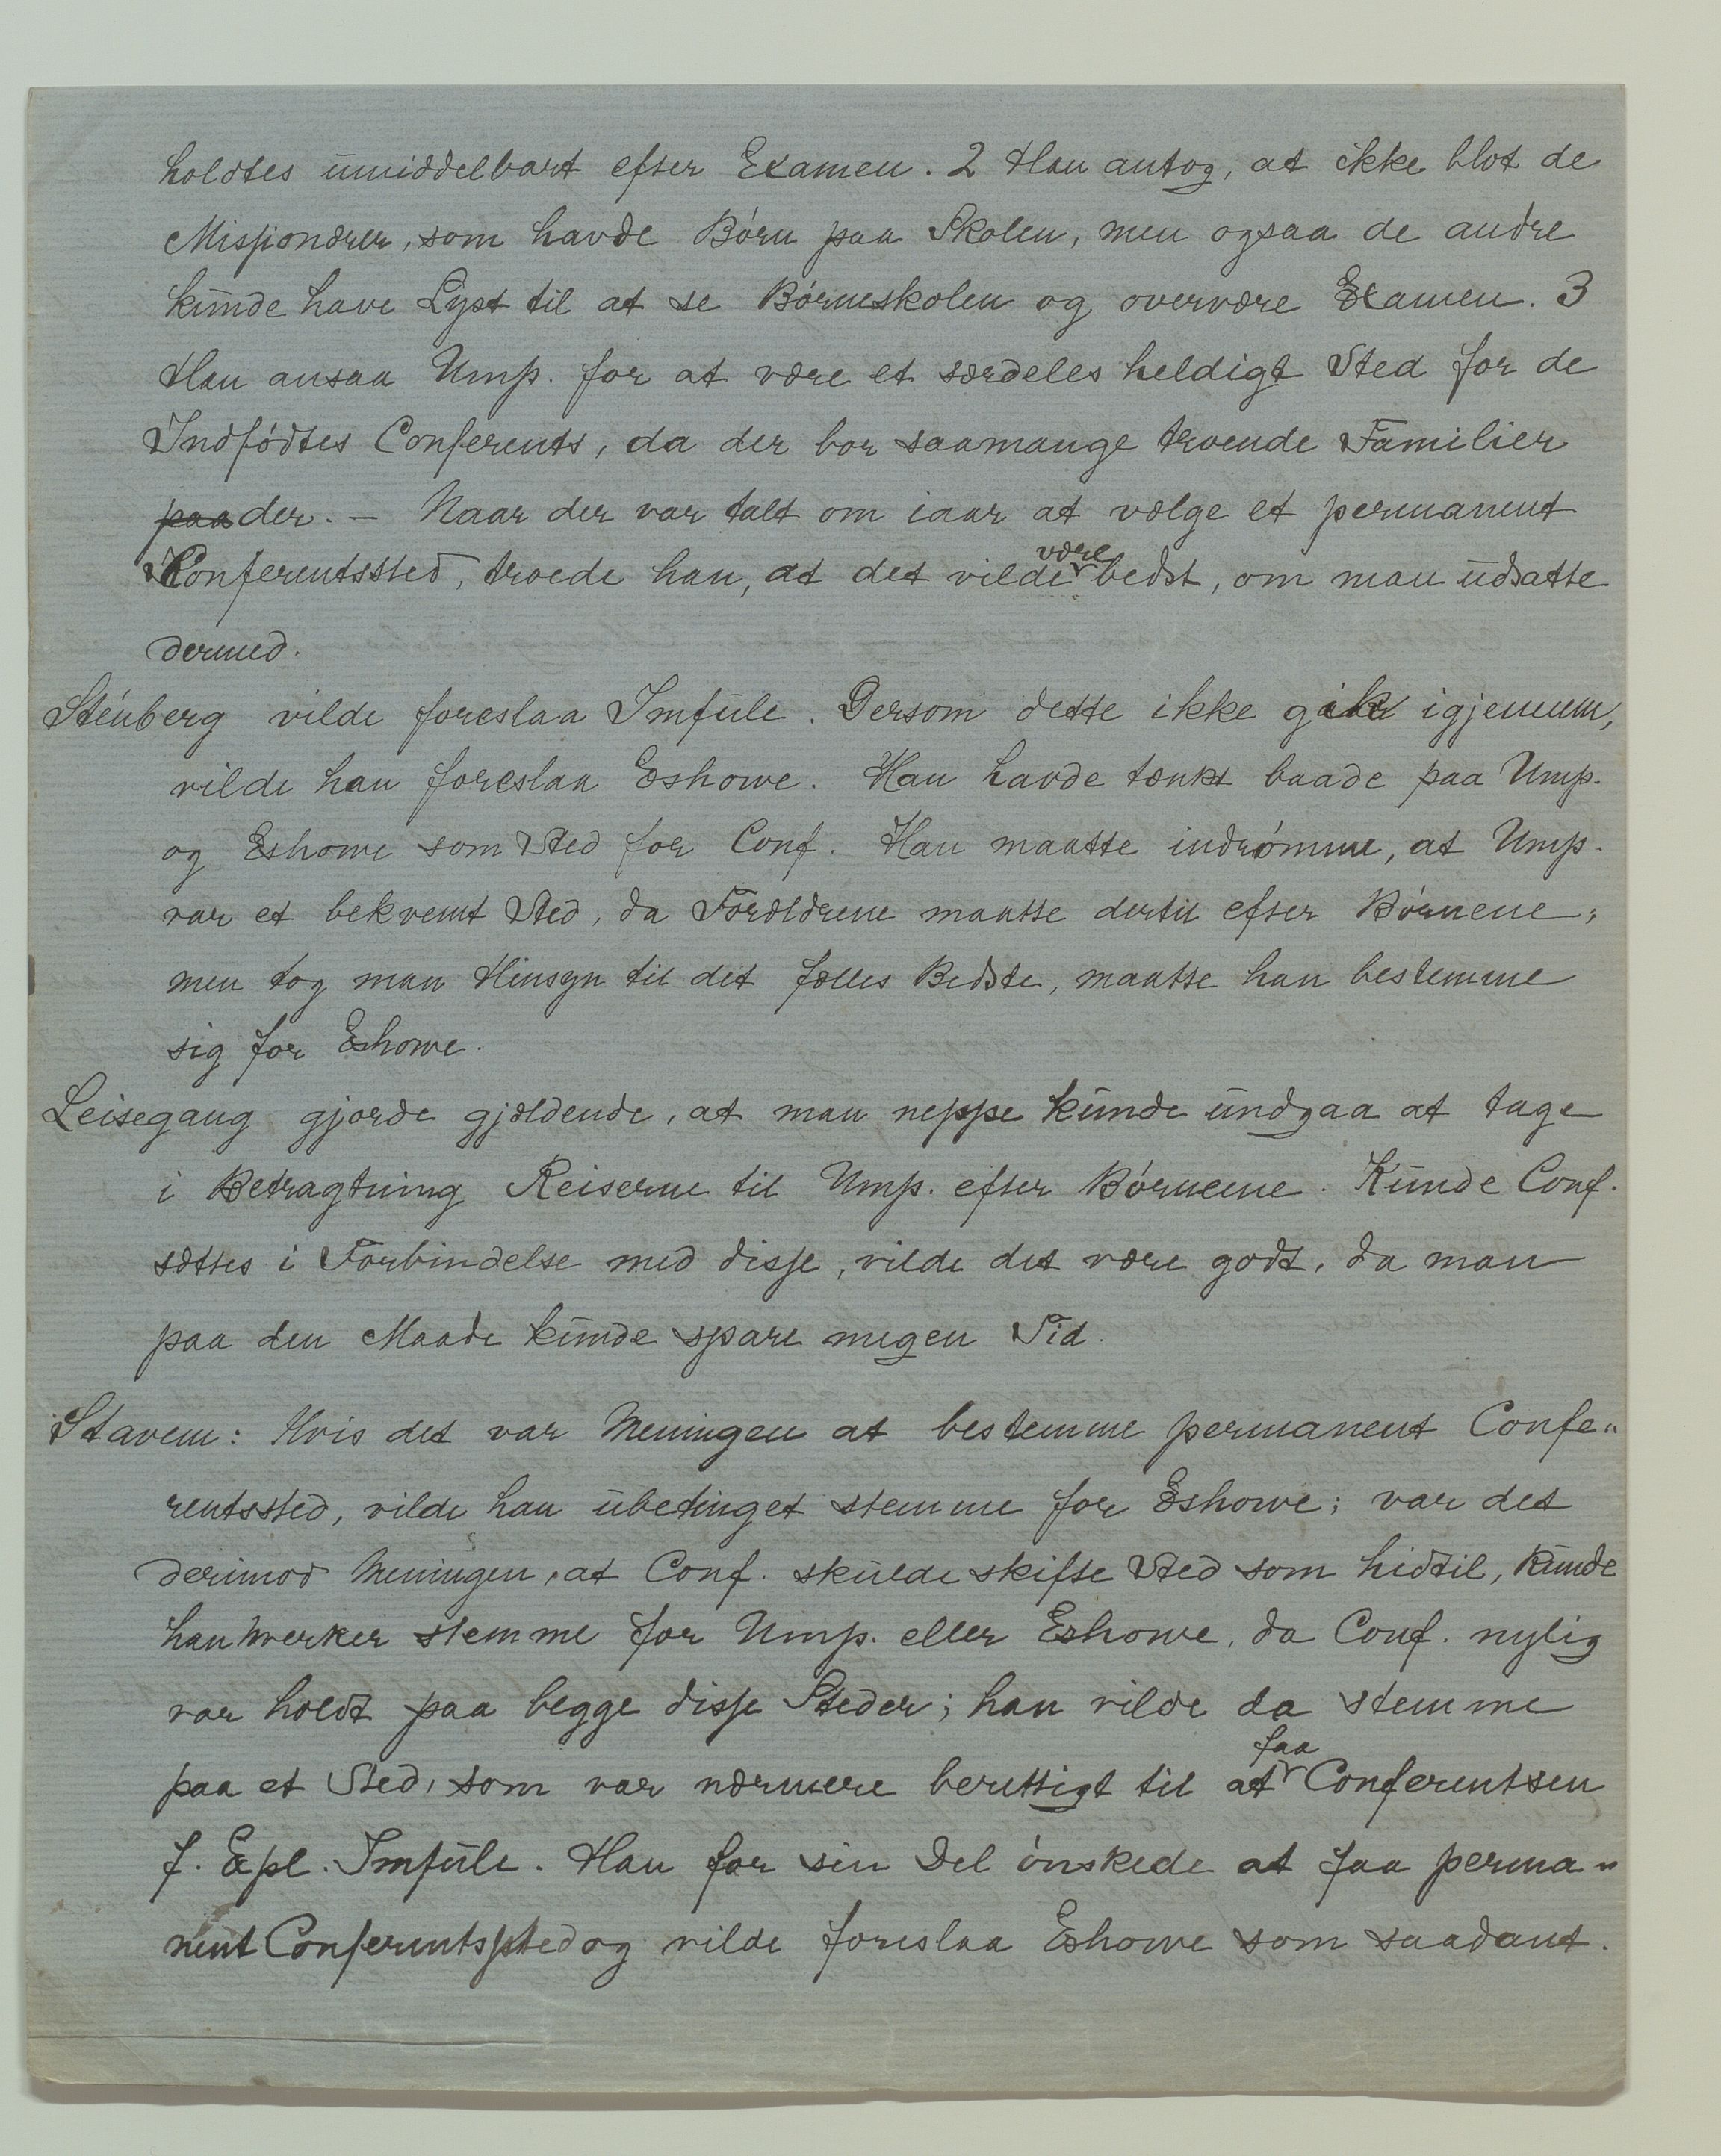 holdtes umiddelbart efter Examen. 2 Han antog, at ikke blot de
Missionærer, som havde Börn paa Skolen, men ogsaa de andre
kunde have Lyst til at se Börneskolen og overvære Examen. 3
Han ansaa Ump. for at være et særdeles heldigt Sted for de
Indfödtes Conferents, da der bor saamange troende Familier
paa der. – Naar der var talt om iaar at vælge et permanent
Conferentssted, troede han, at det vilde være bedst, om man udsatte
dermed.
Sténberg vilde foreslaa Imfule. Dersom dette ikke gik igjennem,
vilde han foreslaa Eshowe. Han havde tænkt baade paa Ump.
og Eshowe som Sted for Conf. Han maatte indrömme, at Ump.
var et bekvemt Sted, da Forældrene maatte dertil efter Börnene;
men tog man Hinsyn til det fælles Bedste, maatte han bestemme
sig for Eshowe.
Leisegang gjorde gjældende, at man neppe kunde undgaa at tage
i Betragtning Reiserne til Ump. efter Börnene. Kunde Conf.
sættes i Forbindelse med disse, vilde det være godt, da man
paa den Maade kunde spare megen Tid.
Stavem: Hvis det var Meningen at bestemme permanent Confe„
rentssted, vilde han ubetinget stemme for Eshowe; var det
derimod Meningen, at Conf. skulde skifte Sted som hidtil, kunde
han hverken stemme for Ump. eller Eshowe, da Conf. nylig
var holdt paa begge disse Steder; han vilde da stemme
paa et Sted, som var nærmere berettigt til at faa Conferentsen
f. Expl. Imfule. Han for sin Del önskede at faa perma„
nent Conferentssted og vilde foreslaa Eshowe som saadant.